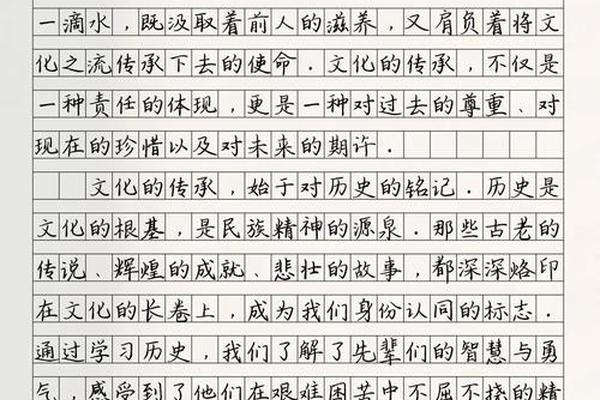 一滴水，既汲取着前人的滋养，又肩负着将文
化之流传承下去的使命．文化的传承，不仅是
一种责任的体现，更是一种对过去的尊重、对
现在的珍惜以及对未来的期许．
文化的传承，始于对历史的铭记．历史是
文化的根基，是民族精神的源泉．那些古老的
传说、辉煌的成就、悲壮的故事，都深深烙印
在文化的长卷上，成为我们身份认同的标志．
通过学习历史，我们了解了先辈们的智慧与勇
气，感受到了他们在艰难困苦中不屈不挠的精